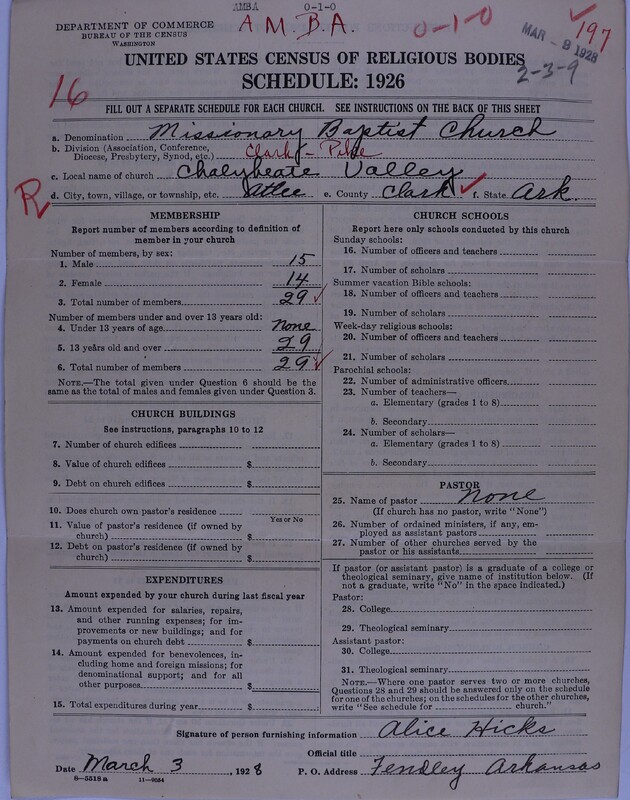 AMBA 0-1-0
A.M.B.A. 0-1-0 197
DEPARTMENT OF COMMERCE
BUREAU OF THE CENSUS
WASHINGTON
MAR - 8 1928
2-3-9
UNITED STATES CENSUS OF RELIGIOUS BODIES
SCHEDULE: 1926
16
FILL OUT A SEPARATE SCHEDULE FOR EACH CHURCH. SEE INSTRUCTIONS ON THE BACK OF THIS SHEET
a. Denomination Missionary Baptist Church
b. Division (Association, Conference,
Diocese, Presbytery, Synod, etc.) Clark-Pike
c. Local name of church Chalybeate Valley
R d. City, town, village, or township, etc. Atlee e. County Clark f. State Ark.
MEMBERSHIP
Report number of members according to definition of
member in your church
Number of members, by sex:
1. Male 15
2. Female 14
3. Total number of members 29
Number of members under and over 13 years old:
4. Under 13 years of age None
5. 13 years old and over 29
6. Total number of members 29
NOTE.—The total given under Question 6 should be
same as the total of males and females given under Question 3.
CHURCH BUILDINGS
See instructions, paragraphs 10 to 12
7. Number of church edifices
8. Value of church edifices $
9. Debt on church edifices $
10. Does church own pastor's residence
Yes or No
11. Value of pastor's residence (if owned by
church) $
12. Debt on pastor's residence (if owned by
church) $
EXPENDITURES
Amount expended by your church during last fiscal year
13. Amount expended for salaries, repairs,
and other running expenses; for im-
provements or new buildings; and for
payments on church debt $
14. Amount expended for benevolences, in-
cluding home and foreign missions; for
denominational support; and for all
other purposes $
15. Total expenditures during year $
CHURCH SCHOOLS
Report here only schools conducted by this church
Sunday schools:
16. Number of officers and teachers
17. Number of scholars
Summer vacation Bible schools:
18. Number of officers and teachers
19. Number of scholars
Week-day religious schools:
20. Number of officers and teachers
21. Number of scholars
Parochial schools:
22. Number of administrative officers
23. Number of teachers—
a. Elementary (grades 1 to 8)
b. Secondary
24. Number of scholars—
a. Elementary (grades 1 to 8)
b. Secondary
PASTOR
25. Name of pastor None
(If church has no pastor, write "None")
26. Number of ordained ministers, if any, em-
ployed as assistant pastors
27. Number of other churches served by the
pastor or his assistants
If pastor (or assistant pastor) is a graduate of a college or
theological seminary, give name of institution below. (If
not a graduate, write "No" in the space indicated.)
Pastor:
28. College
29. Theological seminary
Assistant pastor:
30. College
31. Theological seminary
NOTE.—Where one pastor serves two or more churches,
Questions 28 and 29 should be answered only on the schedule
for one of the churches; on the schedules for the other churches,
write "See schedule for church."
Signature of person furnishing information Alice Hicks
Official title
Date March 3, 1928 P. O. Address Fendley Arkansas
8-5518a 11-9084